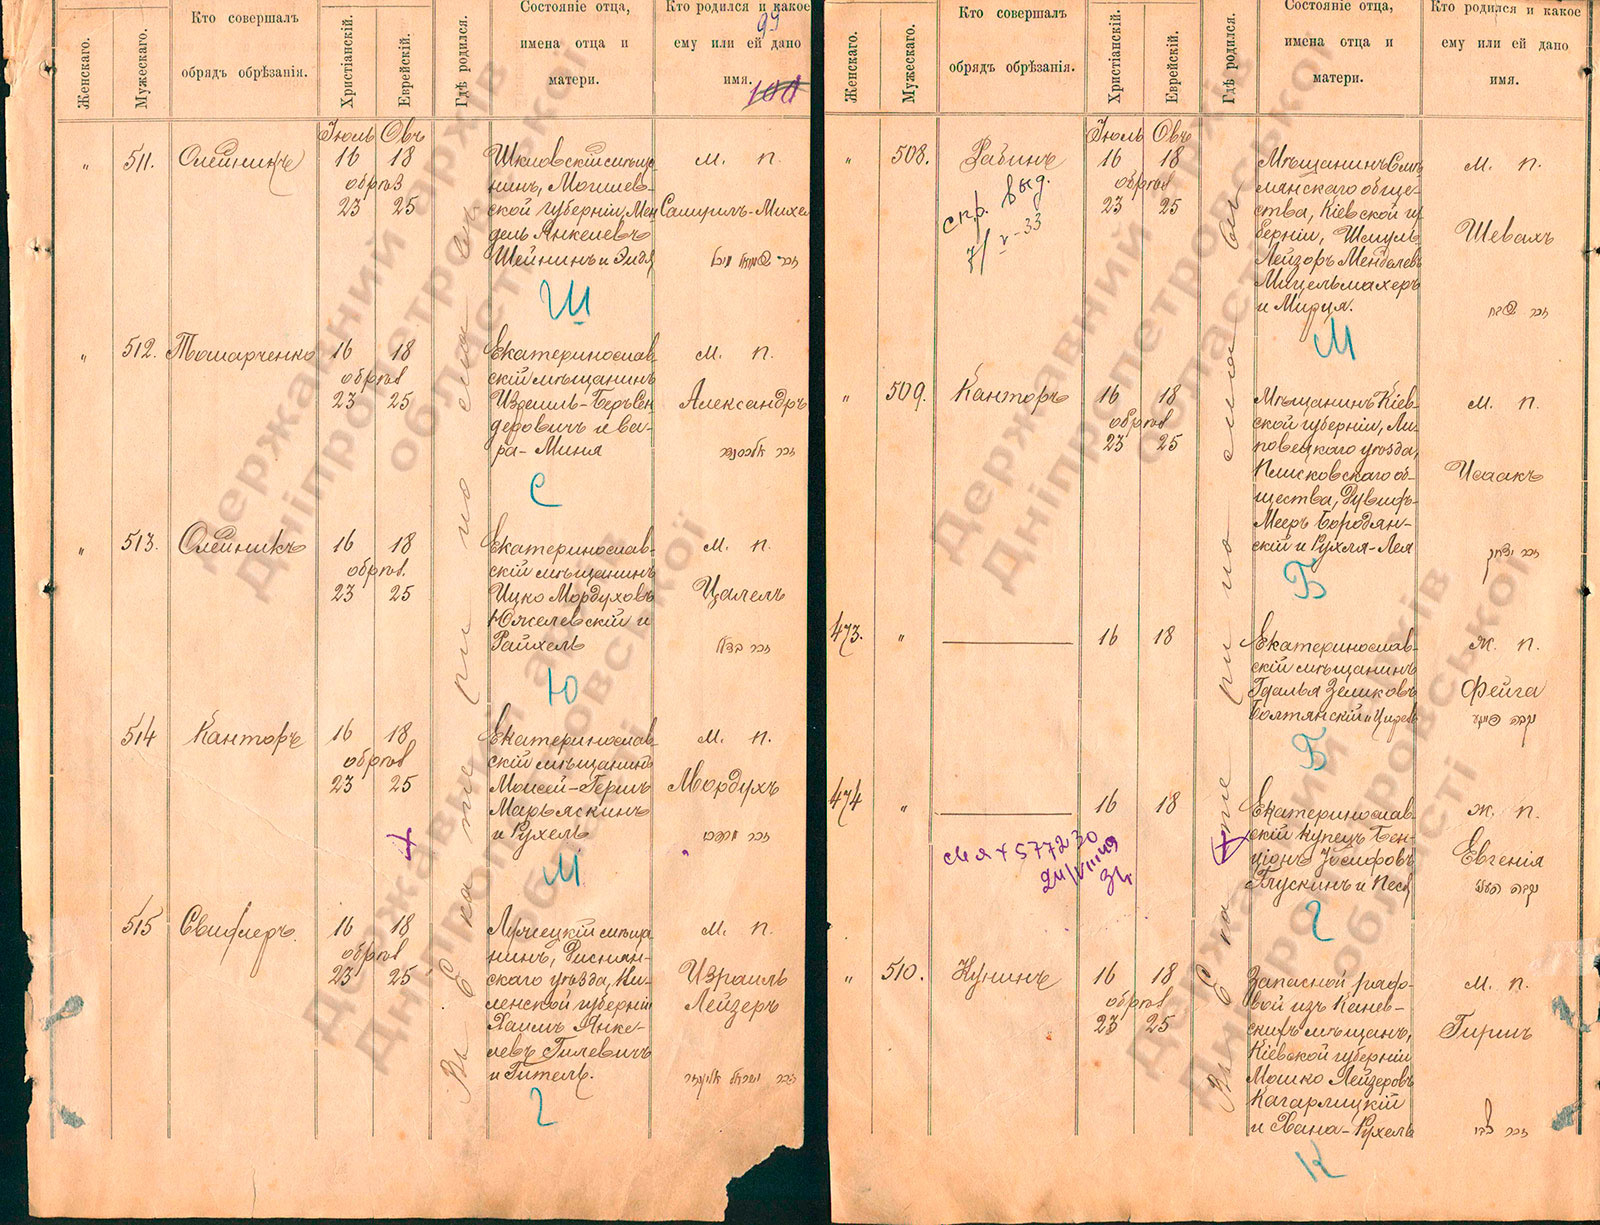 Женскаго.
Мужескаго.
Кто совершалъ
обрядъ обрѣзанія.
Христіанскій.
Еврейскій.
Гдѣ родился.
Состояніе отца,
имена отца и
матери.
Кто родился и какое
ему или ей дано
имя.
Іюль Овъ
„ 511. Олейникъ 16 18
обрѣз
23 25
Могилев-
ской губерніи, Мен
дель Янкелевъ
Шейнинъ и Эйдя
М. п.
Самуилъ-Михе
Ш
„ 512. Тошарченко 16 18
обрѣз
23 25
Екатеринослав
скій мѣщанинъ
Израиль-Беръ Сен
деровичъ и Са-
ра-Миня
М. п.
Александръ
זכר אלכסנדר
С
„ 513. Олейникъ 16 18
обрѣз.
23 25
Екатеринослав-
скій мѣщанинъ
Ицко Мордуховъ
Юзелевскій и
Райхель
М. п.
Цалель
Ю
514 Канторъ 16 18
обрѣз
23 25
Екатеринослав-
скій мѣщанинъ
Моисей-Гершъ
Марьяскинъ
и Рухель
М. п.
Мордухъ
זכר מרדכי
М
515 Свифлеръ. 16 18
обрѣз
23 25
скаго уѣзда, Ви-
ленской губерніи
Хаимъ Янке-
левъ Гилевичъ
и Гитель.
М. п.
Израиль
Лейзеръ
זכר ישראל אליעזר
Г
Въ Екатеринославѣ
Женскаго.
Мужескаго.
Кто совершалъ
обрядъ обрѣзанія.
Христіанскій.
Еврейскій.
Гдѣ родился.
Состояніе отца,
имена отца и
матери.
Кто родился и какое
ему или ей дано
имя.
Іюль Овъ
„ 508. Рабинъ 16 18
обрѣз
23 25
спр. выд.
7/V-33
Мѣщанинъ Смѣ
лянскаго обще-
ства, Кіевской гу
берніи, Шмуль
Лейзоръ Менделевъ
Мицельмахеръ
и Мирця.
М. п.
Шевахъ
זכר שבח
М
„ 509. Канторъ 16 18
обрѣз
23 25
Мѣщанинъ Кіев-
ской губерніи, Ли-
повецкаго уѣзда,
Плисковскаго об-
щества, Рувинъ-
Мееръ Бородян-
скій и Рухля-Лея
М. п.
Исаакъ
זכר יצחק
Б
473. „ 16 18
Екатеринослав-
скій мѣщанинъ
Гдалья Зеликовъ
Болтянскій и
Ж. п.
Фейга
נקבה פייגע
Б
474 „ 16 18
Екатеринослав-
скій купецъ Бен-
ціонъ Іосифовъ
Глускинъ и Песя
Ж. п.
Евгенія
Г
„ 510. Кунинъ 16 18
обрѣз
23 25
Запасной рядо-
вой изъ Канев-
скихъ мѣщанъ,
Кіевской губерніи
Мошко Лейзеровъ
Кагарлицкій
и Хана-Рухель
М. п.
Гиршъ
זכר צבי
К
Въ Екатеринославѣ
Державний архів
Дніпропетровської
області